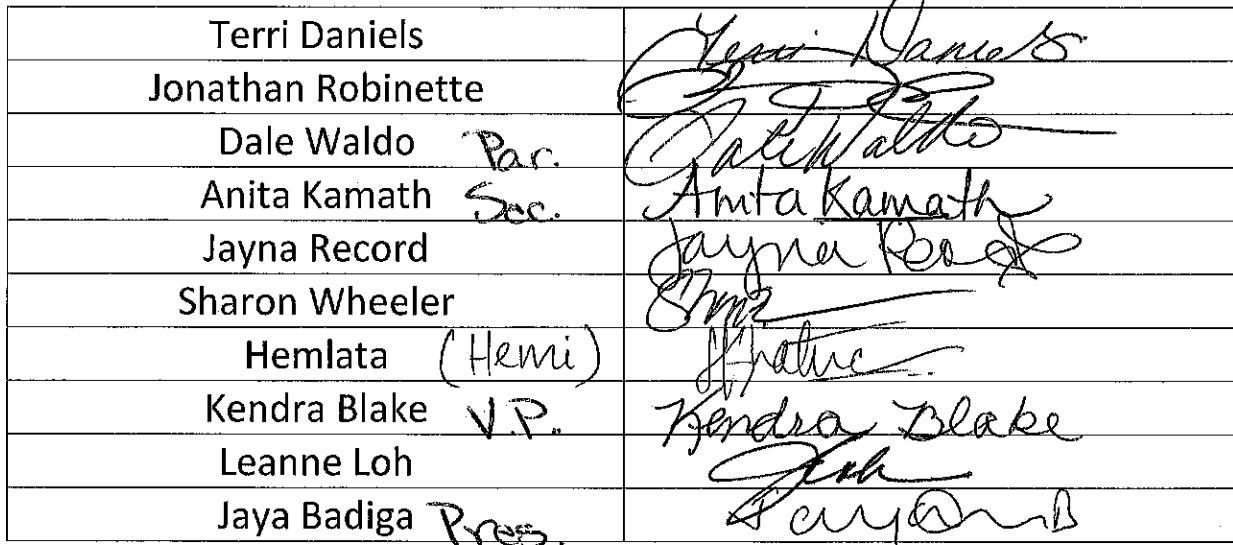 Terri Daniels Terri Daniels
Jonathan Robinette
Dale Waldo Par. Dale Waldo
Anita Kamath Sec. Anita Kamath
Jayna Record Jayna Record
Sharon Wheeler
Hemlata (Hemi)
Kendra Blake V.P. Kendra Blake
Leanne Loh
Jaya Badiga Pres.